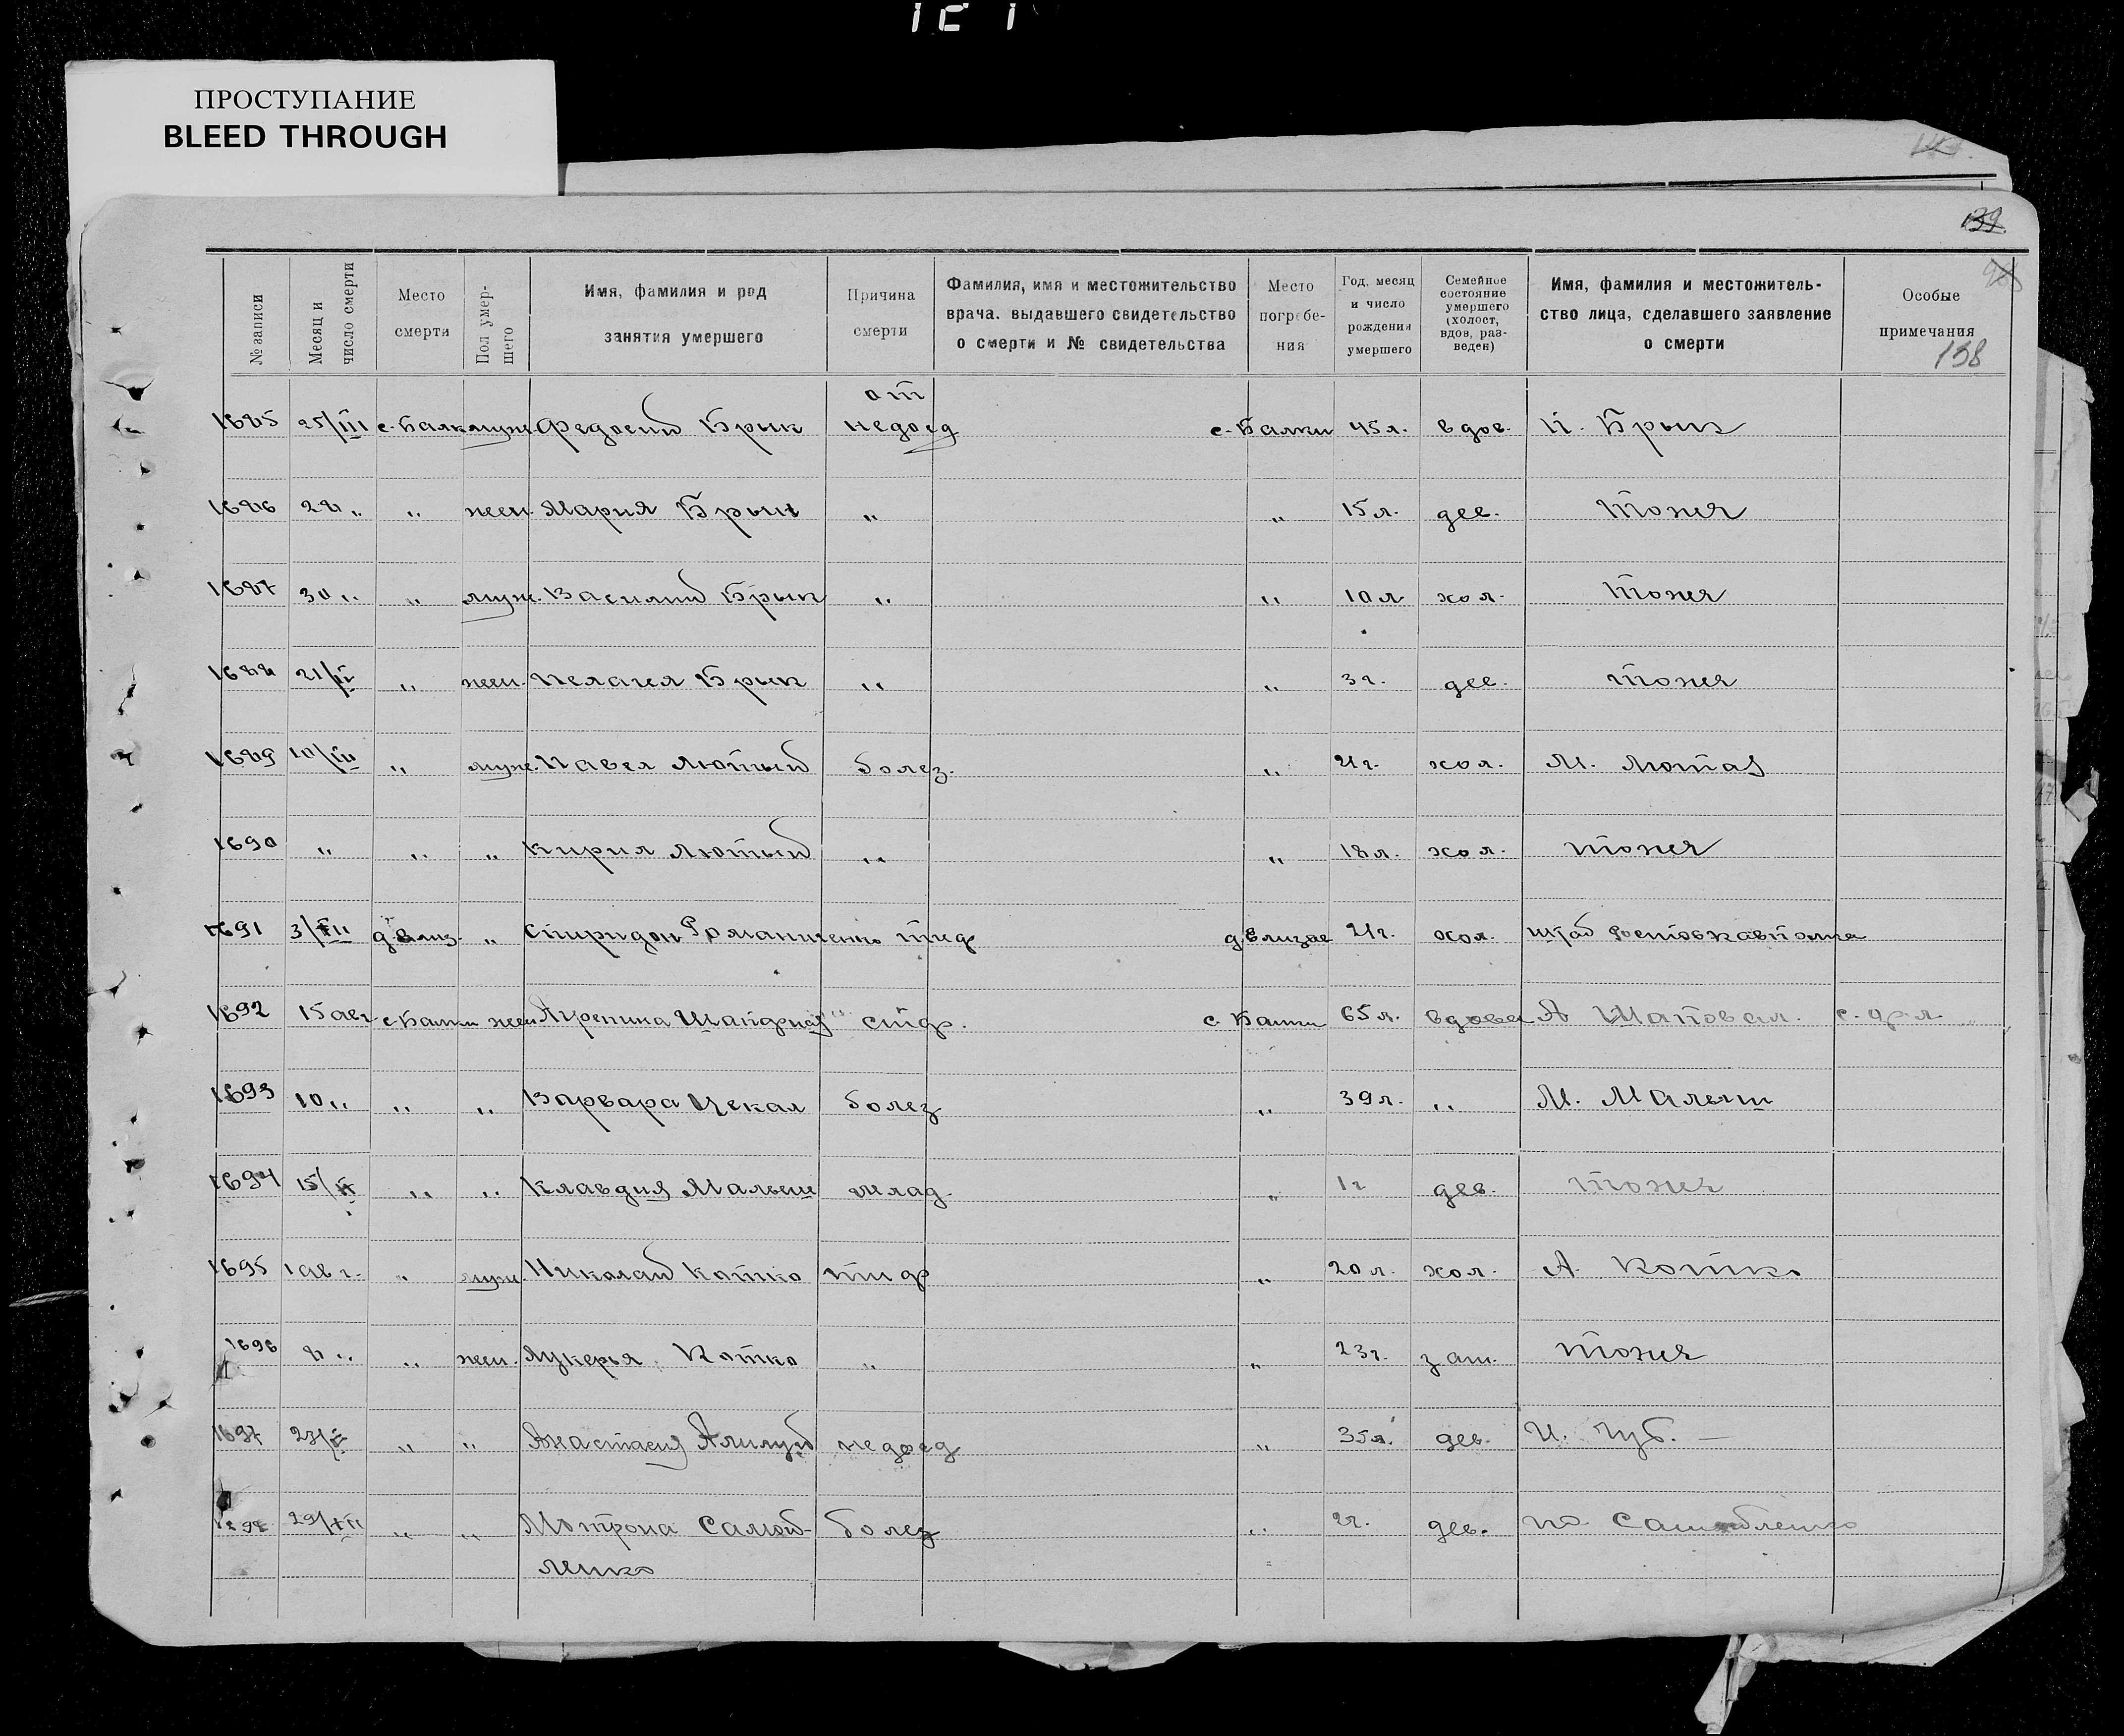 ПРОСТУПАНИЕ
BLEED THROUGH
139
№ записи
Месяц и число смерти
Место смерти
Пол умер-шего
Имя, фамилия и род занятия умершего
Причина смерти
Фамилия, имя и местожительство врача, выдавшего свидетельство о смерти и № свидетельства
Место погребе-ния
Год, месяц и число рождения умершего
Семейное состояние умершего (холост, вдов, раз-веден)
Имя, фамилия и местожитель-ство лица, сделавшего заявление о смерти
Особые примечания
138
от
1685 25/III с. Балк муж. Федосий Брык недоед с. Балки 45 л. вдов. Брык
1686 28 „ „ жен. Мария Брык „ „ 15 л. дев. тоже
1687 30 „ „ муж. Василий Брык „ „ 10 л хол. тоже
1688 21/ „ жен. Пелагея Брык „ „ 3 г. дев. тоже
1689 10/ „ муж. Павел Лютый болез. „ 21 г. хол. М. Лютая
1690 „ „ „ Кирил Лютый „ „ 18 л. хол. тоже
1691 3/ „ Спиридон Романченко тиф 21 г. хол. штаб
1692 15 авг с Балки жен Агрепина с Балки 65 л. вдова А Шаповал.
1693 10 „ „ „ Варвара Чекал болез „ 39 л. „ М. Малыш
1694 15/ „ „ Клавдия Малыш „ 1 г дев. тоже
1695 1 авг. „ муж. Николай Котко тиф „ 20 л. хол. А. Котко
1696 8 „ „ жен. Лукерья Котко „ „ 23 г. зам. тоже
1697 23/ „ „ Анастасия недоед „ 35 л. дев. И. Чуб. —
1698 29/ „ „ Мотрона Самой- болез „ 2 г. дев.
ленко